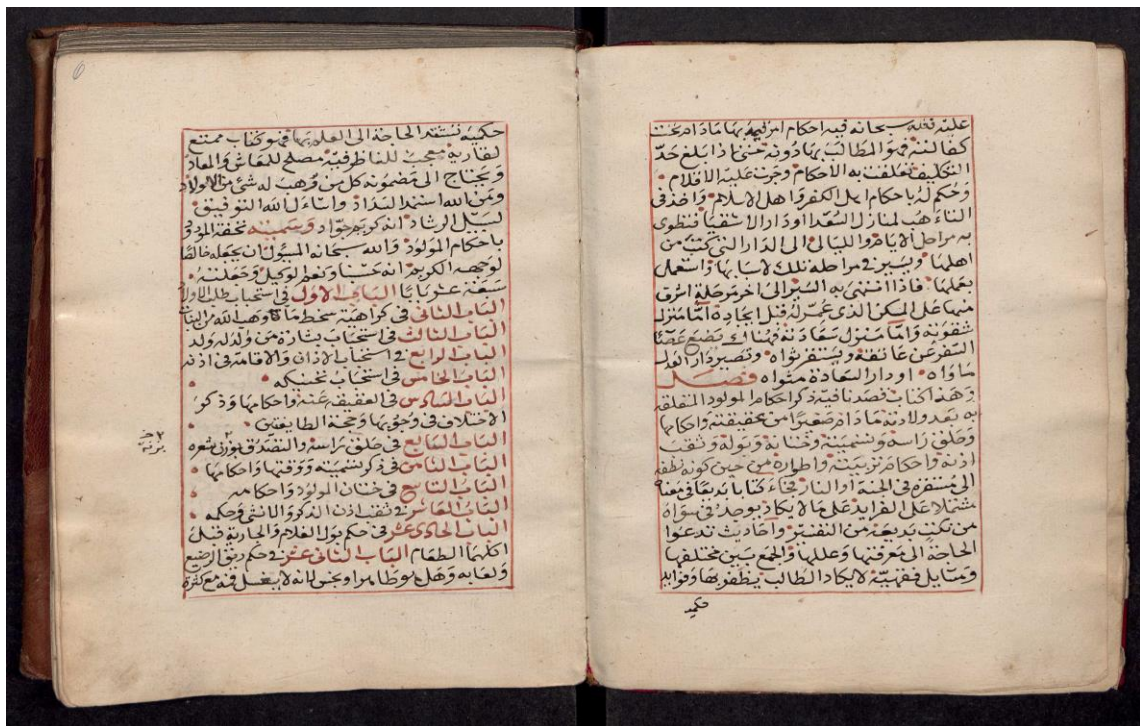 عليه فلله سبحانه فيه احكام امر قيمه بها ما دام تحت
كفالته فهو المطالب بها دونه حتى اذا بلغ حد
التكليف تعلقت به الاحكام وجرت عليه الاقلام
وحكم له باحكام اهل الكفر واهل الاسلام واخذ في
التاهب لمنازل السعدا او دار الاشقيا فتطوى
به مراحل الايام والليالي الى الدار التي كتب من
اهلها ويسير في مراحله تلك لاسبابها واستعمل
بعملها فاذا انتهى به السير الى اخر مرحلة اشرف
منها على المسكن الذي عمر له قبل ايجاده اما منزل
شقوته واما منزل سعادته فهناك يضع عصا
السفر عن عاتقه ويستقر نواه وتصير دار العدل
ماواه او دار السعادة مثواه فصل
وهذا كتاب قصدنا فيه ذكر احكام المولود المتعلقة
به بعد ولادته ما دام صغيرا من عقيقته واحكامها
وحلق راسه وتسميته وختانه وبوله وثقب
اذنه واحكام تربيته واطواره من حين كونه نطفة
الى مستقره في الجنة او النار فجاء كتابا بديعا في معناه
مشتملا على الفوايد على ما لا يكاد يوجد في سواه
من نكت بديعة من التفسير واحاديث تدعوا
الحاجة الى معرفتها وعللها والجمع بين مختلفها
ومسايل فقهية لا يكاد الطالب يظفر بها وفوايد
حكميه
6
حكمية تشتد الحاجة الى العلم بها فهو كتاب ممتع
لقاريه معجب للناظر فيه مصلح للمعاش والمعاد
ويحتاج الى مضمونه كل من وهب له شئ من الاولاد
ومن الله استمد السداد واسأل الله التوفيق
لسبيل الرشاد انه كريم جواد وسميته تحفة المودود
باحكام المولود والله سبحانه المسئول ان يجعله خالصا
لوجهه الكريم انه حسبنا ونعم الوكيل وجعلته
سبعة عشر بابا الباب الاول في استحباب طلب الاولاد
الباب الثاني في كراهة سخط ما وهب الله من البنات
الباب الثالث في استحباب بشارة من ولد له ولد
الباب الرابع في استحباب الاذان والاقامة في اذنه
الباب الخامس في استحباب تحنيكه
الباب السادس في العقيقة عنه واحكامها وذكر
الاختلاف في وجوبها وحجة الطايفتين
الباب السابع في حلق راسه والتصدق بوزن شعره
الباب الثامن في ذكر تسميته ووقتها واحكامها
الباب التاسع في ختان المولود واحكامه
الباب العاشر في ثقب اذن الذكر والانثى وحكمه
الباب الحادي عشر في حكم بول الغلام والجارية قبل
اكلهما الطعام الباب الثاني عشر في حكم ريق الرضيع
ولعابه وهل هو طاهر او نجس لانه لا يغسل فمه مع كثرة